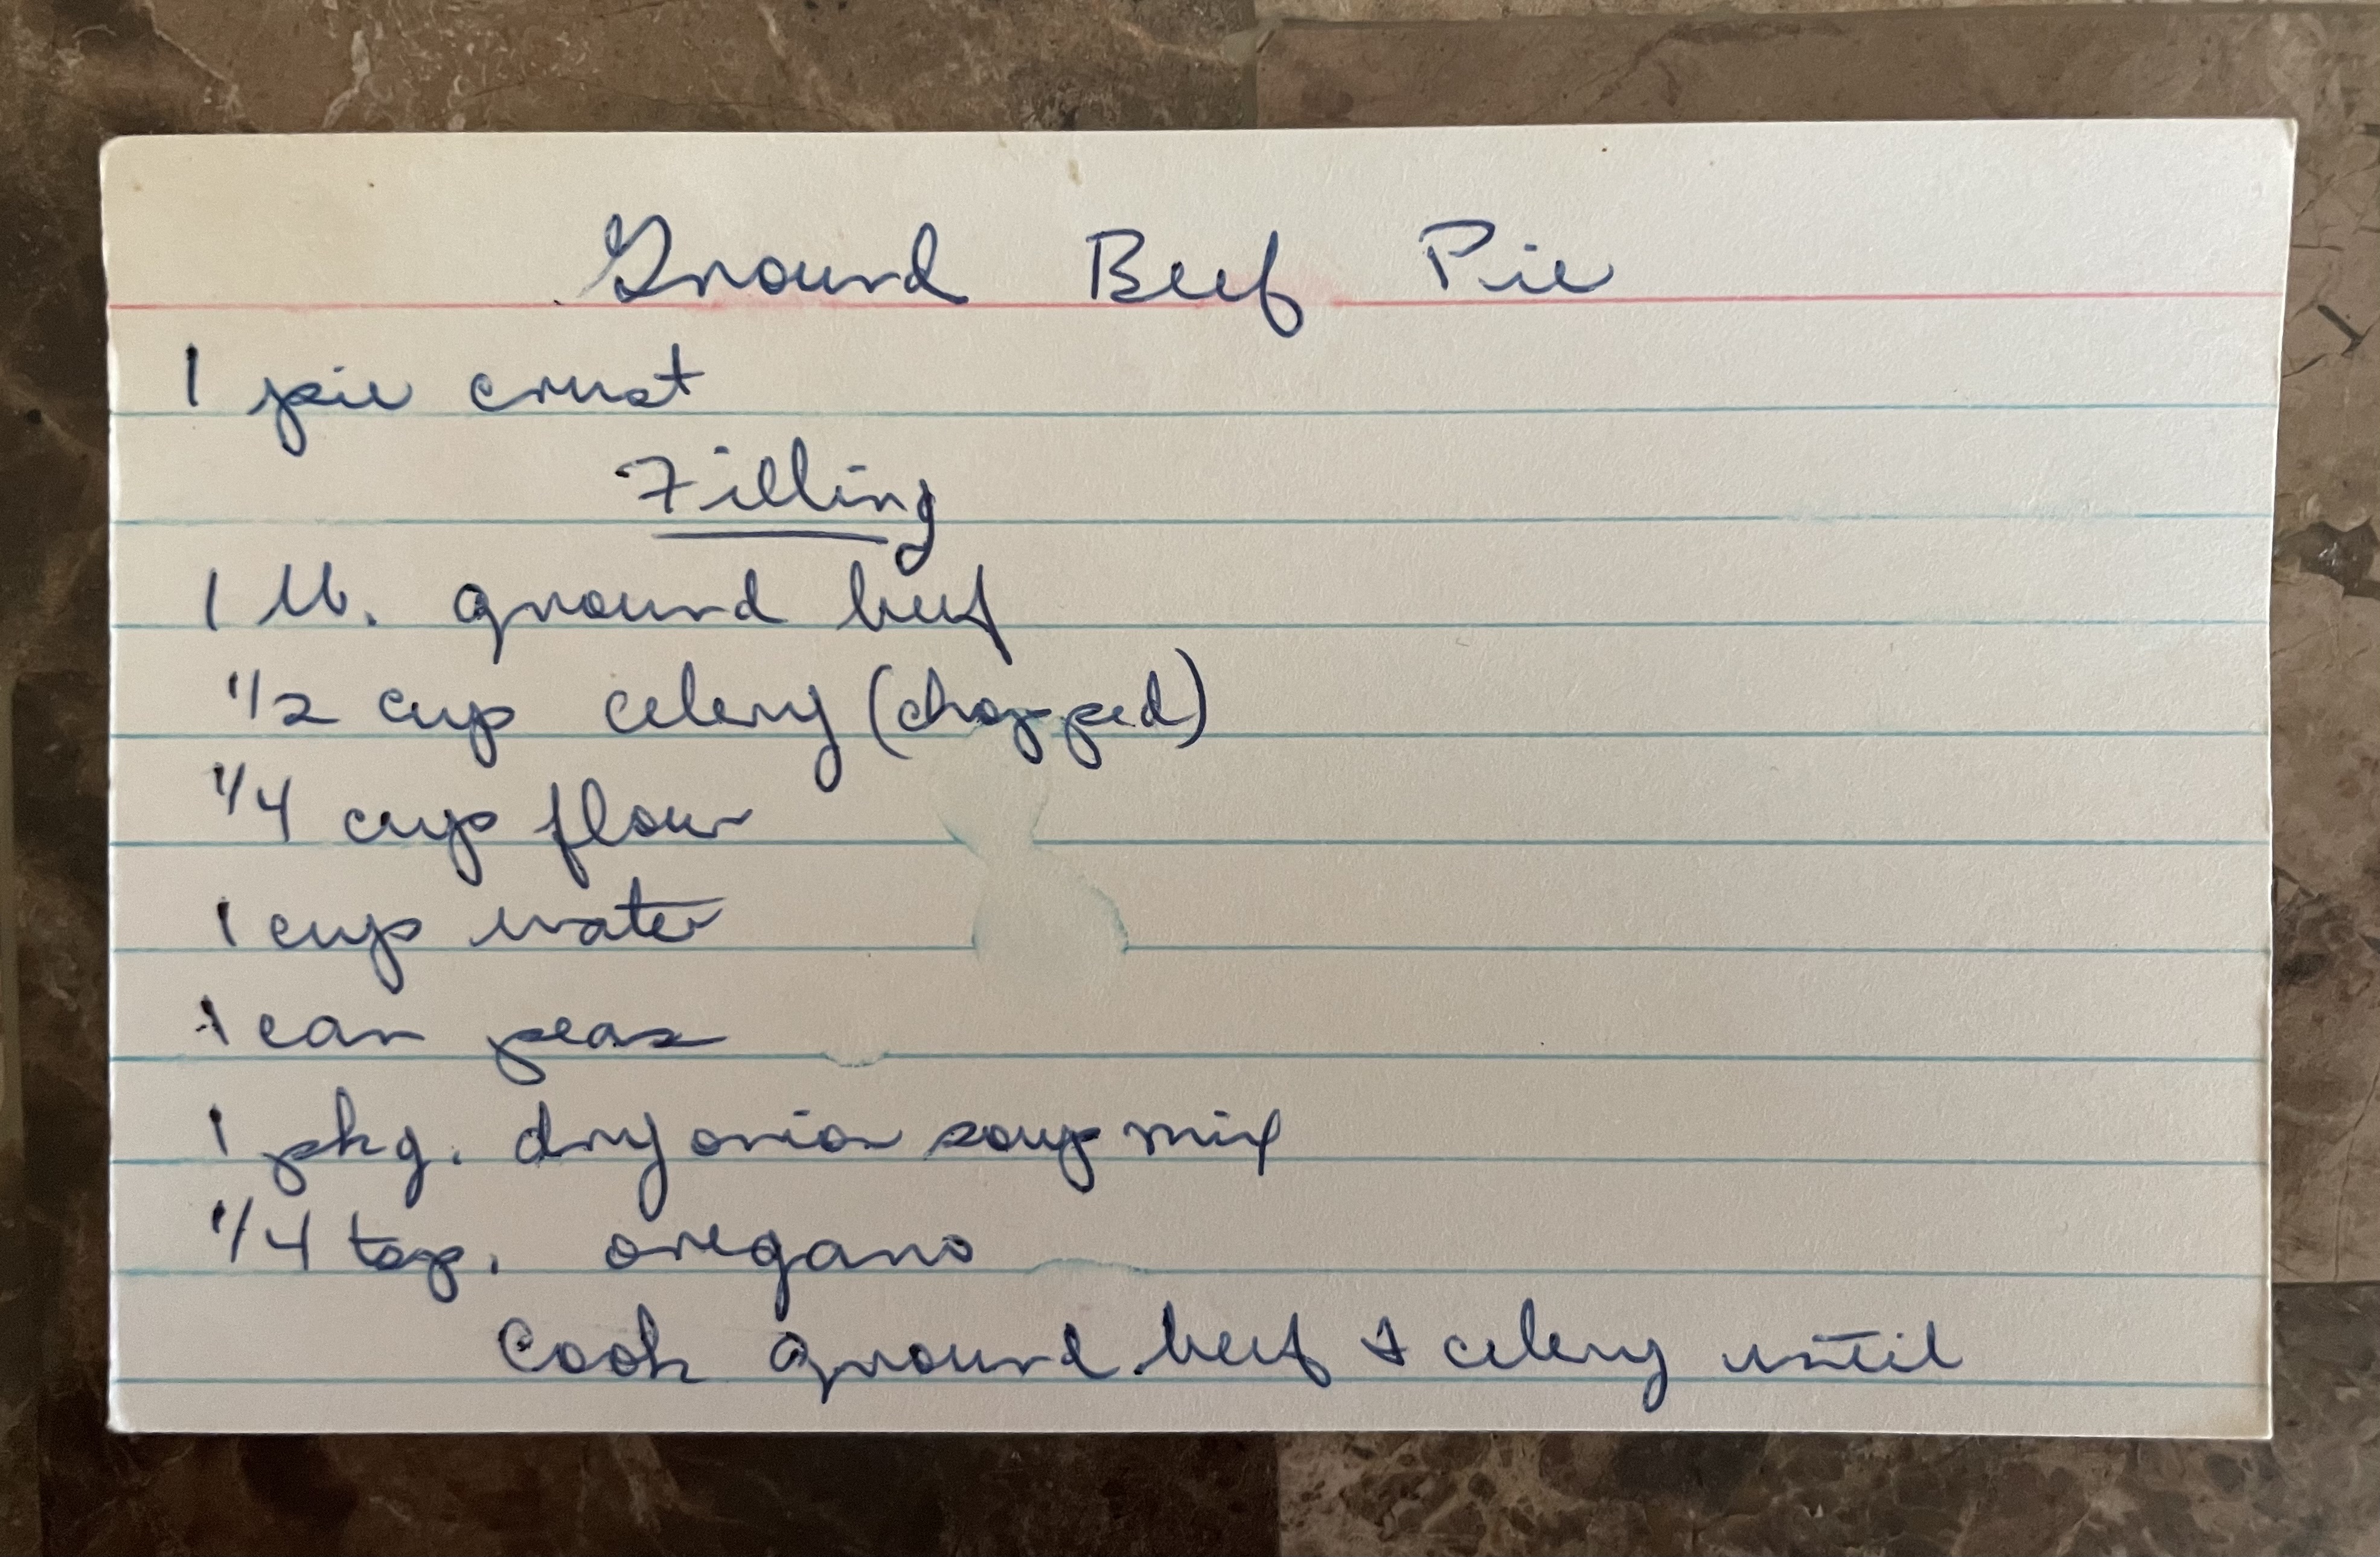 Ground Beef Pie
1 pie crust
Filling
1 lb. ground beef
1/2 cup celery (chopped)
1/4 cup flour
1 cup water
1 can peas
1 pkg. dry onion soup mix
1/4 tsp. oregano
Cook ground beef & celery until